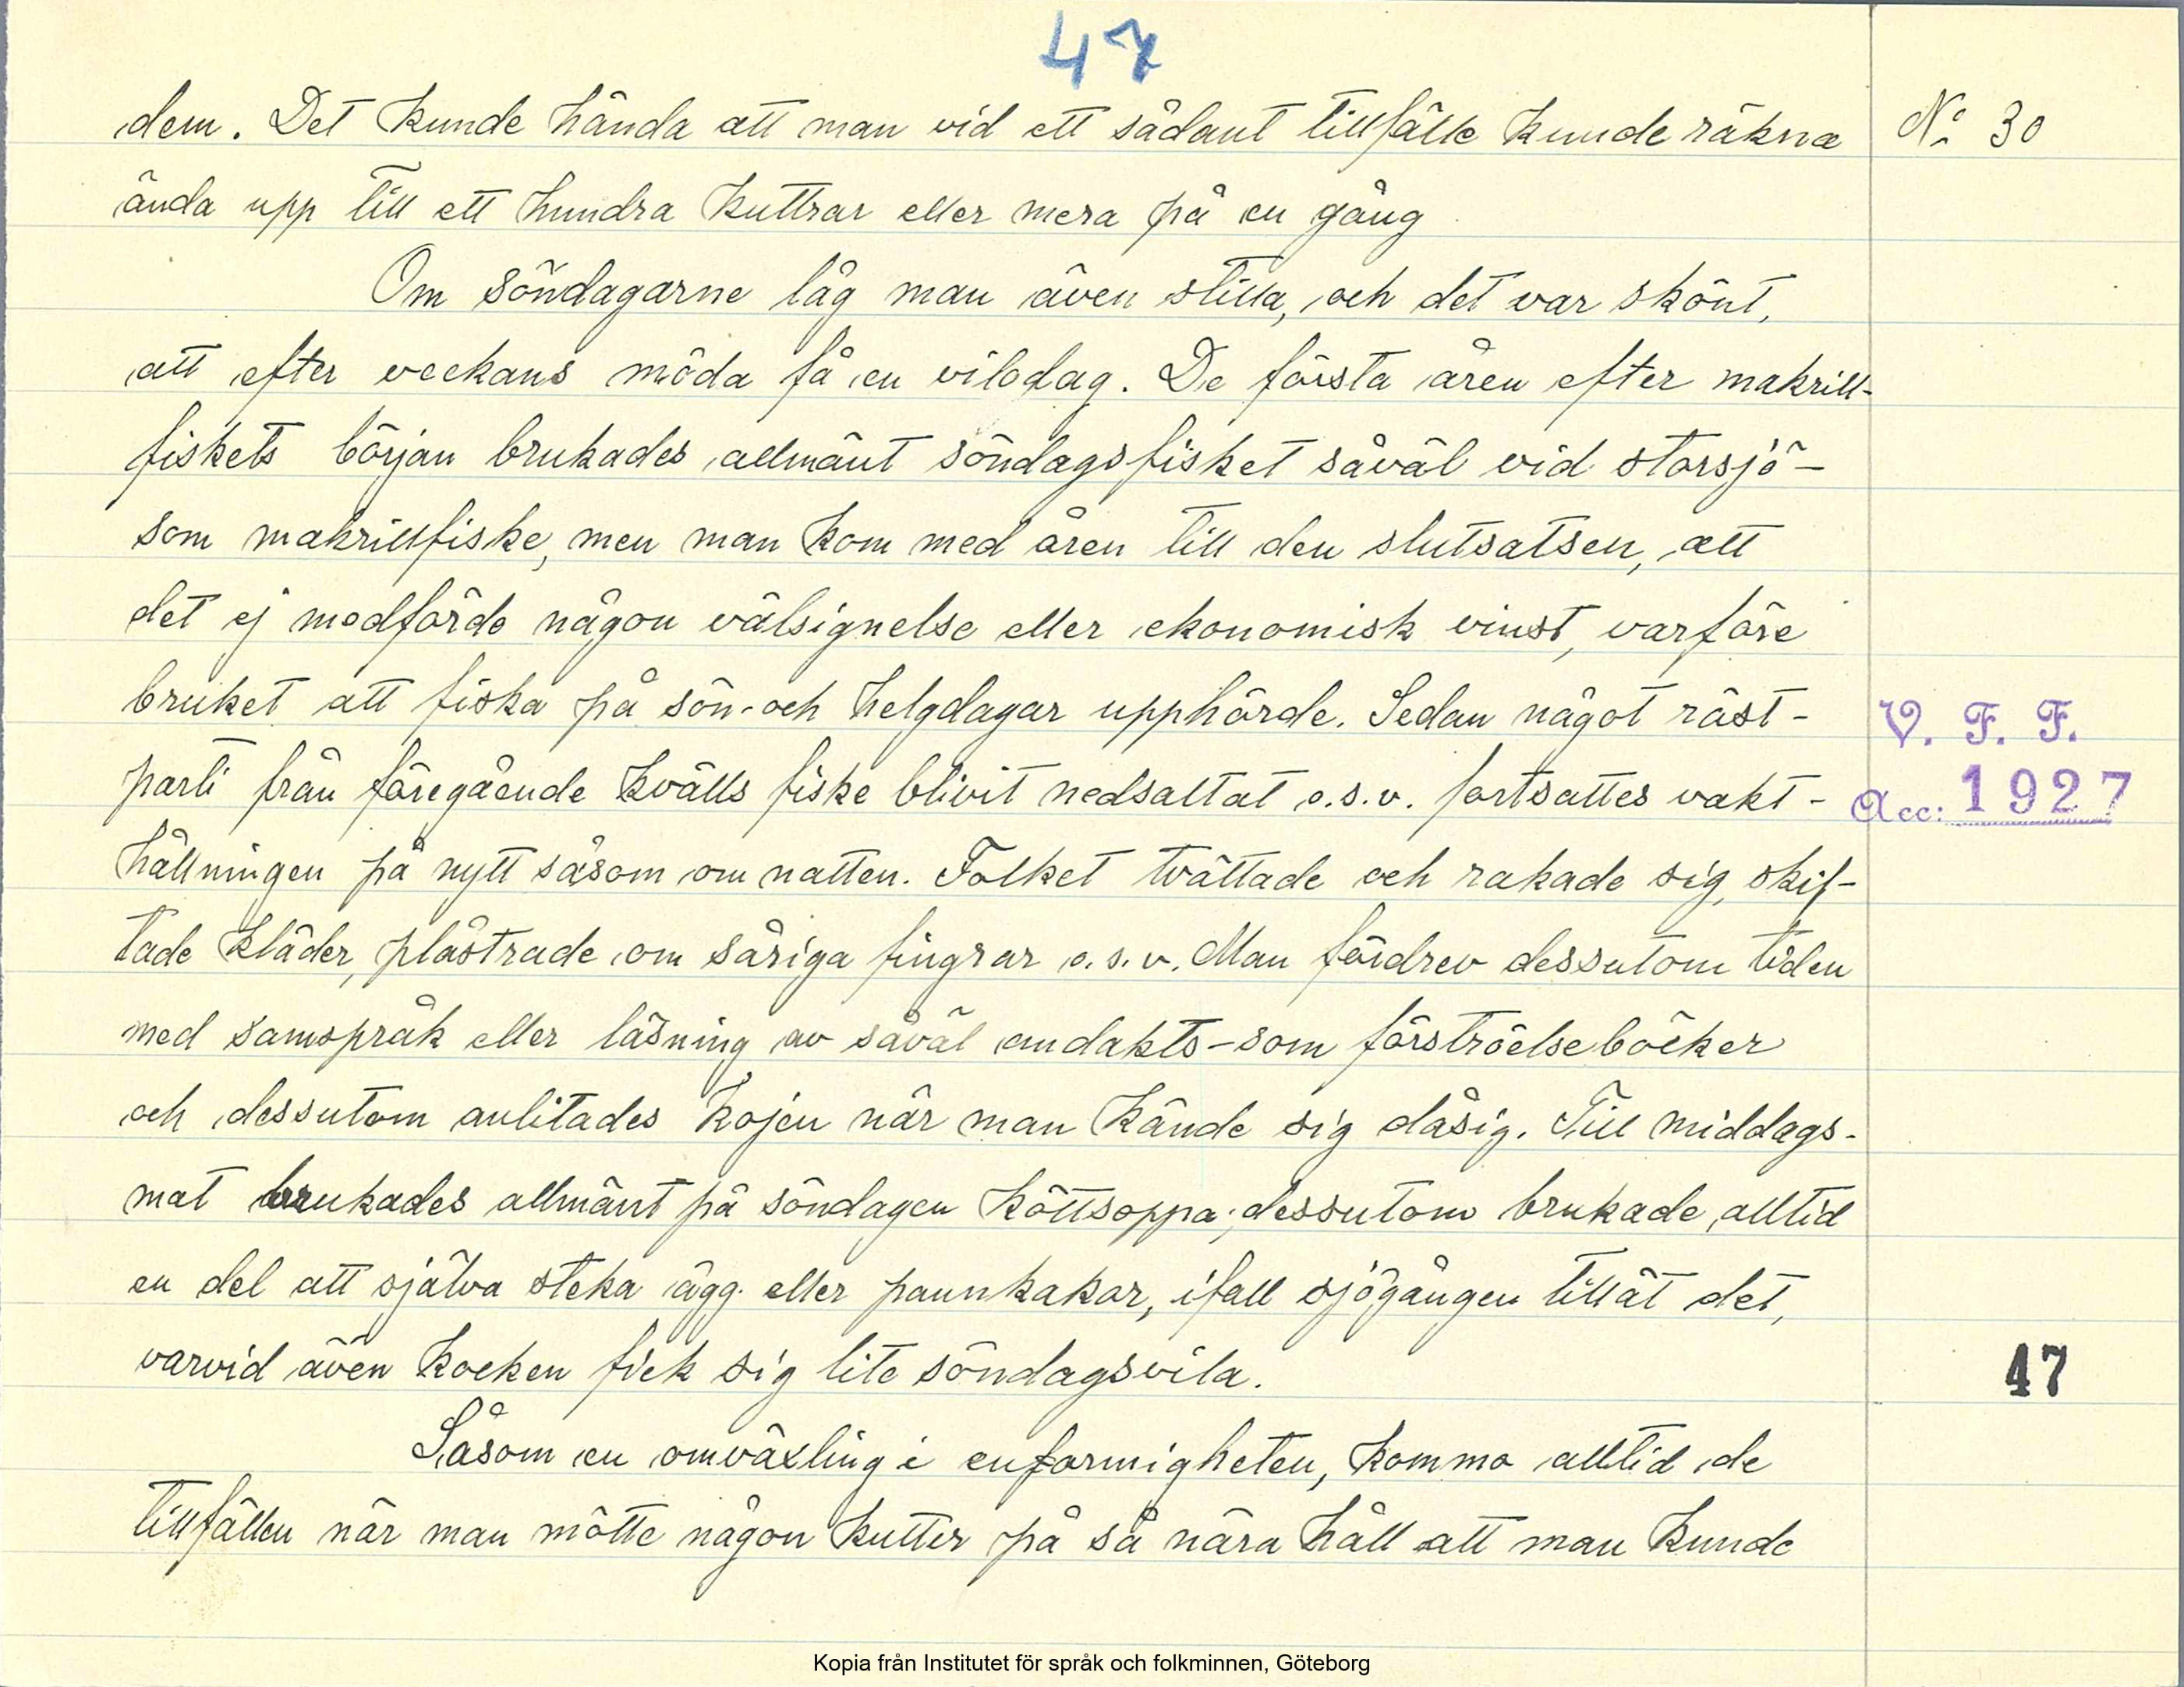 47
dem. Det kunde hända att man vid ett sådant tillfälle kunde räkna
No 30
ända upp till ett hundra kuttrar eller mera på en gång.
Om söndagarne låg man även stilla, och det var skönt,
att efter veckans möda få en vilodag. De första åren efter makrill-
fiskets början brukades allmänt söndagsfisket såväl vid storsjö-
som makrillfiske, men man kom med åren till den slutsatsen, att
det ej medförde någon välsignelse eller ekonomisk vinst, varföre
bruket att fiska på sön- och helgdagar upphörde. Sedan något räst-
V. F. F.
parti från föregående kvälls fiske blivit nedsaltat o.s.v. fortsattes vakt-
Acc: 1927
hållningen på nytt såsom om natten. Folket tvättade och rakade sig, skif-
tade kläder, plåstrade om såriga fingrar o.s.v. Man fördrev dessutom tiden
med samspråk eller läsning av såväl andakts- som förströelseböcker
och dessutom anlitades kojen när man kände sig dåsig. Till middags-
mat brukades allmänt på söndagen köttsoppa; dessutom brukade alltid
en del att själva steka ägg eller pannkakor, ifall sjögången tillät det,
varvid även kocken fick sig lite söndagsvila.
47
Såsom en omväxling i enformigheten, kommo alltid de
tillfällen när man mötte någon kutter på så nära håll att man kunde
Kopia från Institutet för språk och folkminnen, Göteborg